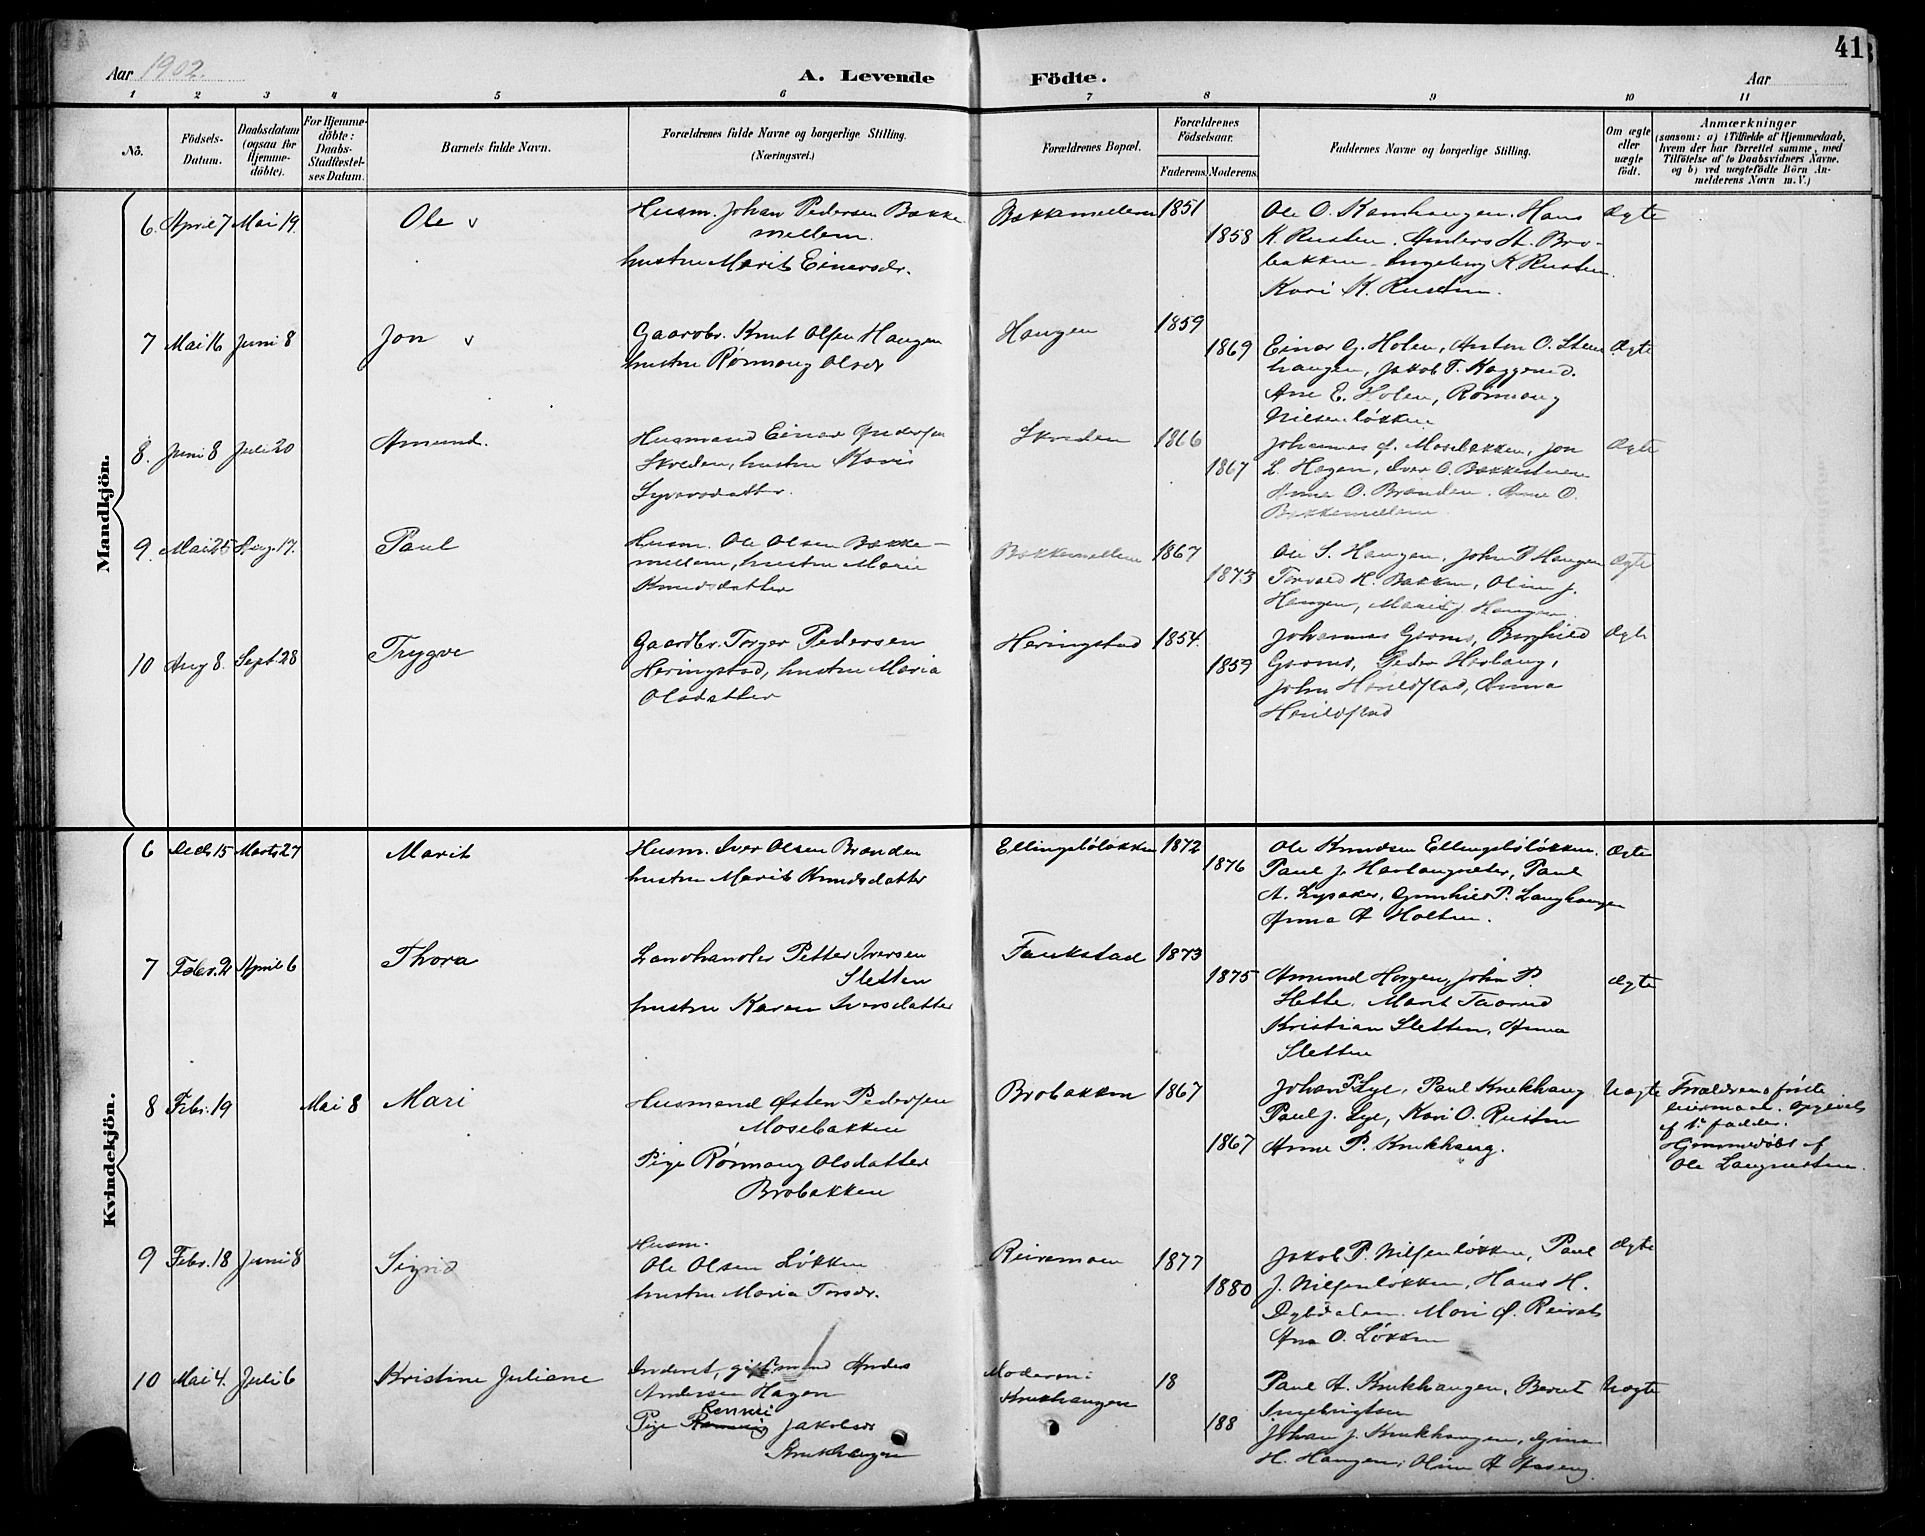 Aar 1902.
A. Levende
Födte.
Aar
41
1 2 3 4 5 6 7 8 9 10 11
Nō.
Födsels-
Datum.
Daabsdatum
(ogsaa for
Hjemme-
döbte).
For Hjemme-
döbte:
Daabs-
Stadfæstel-
ses Datum.
Barnets fulde Navn.
Forældrenes fulde Navne og borgerlige Stilling.
(Næringsvei.)
Forældrenes Bopæl.
Forældrenes
Födselsaar.
Faderens. Moderens.
Faddernes Navne og borgerlige Stilling.
Om ægte
eller
uægte
födt.
Anmærkninger
(saasom: a) i Tilfælde af Hjemmedaab,
hvem der har forrettet samme, med
Tilföielse af to Daabsvidners Navne.
og b) ved uægtefödte Börn An-
melderens Navn m. V.)
Mandkjön.
6. April 7 Mai 19. Ole v
Husm. Johan Pedersen Bakke
mellem.
hustru Marit Einersdr.
Bakkemellem 1851
1858
Ole O. Kamhaugen. Hans
K. Rusten. Anders A. Bro-
bakken. Ingeborg K. Rusten.
Kari K. Rusten.
Ægte
7 Mai 16 Juni 8 Jon v
Gaardbr. Knut Olsen Haugen
hustru Rønnaug Olsdr
Haugen 1859
1869
Einar G. Holen, Anton O. Sten
haugen, Jakob T. Kaggerud.
Ane E. Holen, Rønnaug
Nilsenløkken
Ægte
8. Juni 8 Juli 20 Amund.
Husmand Einar Gudersen
Skreden, hustru Kari
Syversdatter.
Skreden 1866
1867
Johannes J. Mosebakken, Jon
L. Hagen, Iver O. Bakkestuen
Anna O. Brænden. Anne O.
Bakkemellem
Ægte
9. Mai 25 Aug. 17. Paul
Husm. Ole Olsen Bakke-
mellem, hustru Marie
Knudsdatter
Bakkemellem 1867
1873
Ole S. Haugen, John P Haugen
Torvald H. Bakken, Olin J.
Haugen, Marit J. Haugen.
Ægte
10 Aug 8. Sept. 28 Trygve
Gaardbr. Torger Pedersen
Heringstad, hustru Maria
Olsdatter
Heringstad 1854.
1859
Johannes Garmo, Borghild
Garmo, Peder Harlaug,
John Harildstad, Anna
Harildstad
Ægte
Kvindekjön.
6 Decb. 15 Marts 27 Marit
Husm. Iver Olsen Brænden
hustru Marit Knudsdatter
Ellingsløløkken 1872
1876
Ole Knudsen Ellingsløløkken.
Paul J. Harlaugsæter, Paul
A. Lysaker, Gunhild P. Langhaugen
Anna A Holten.
Ægte
7 Febr. 2 April 6 Thora
Landhandler Petter Iversen
Sletten
hustru Karen Iversdatter
Faukstad 1873
1875
Amund Horgen, John P.
Slette. Marit Taarud
Kristian Sletten, Anna
Sletten
Ægte
8 Febr. 19 Mai 8 Mari
Husmand Østen Pedersen
Mosebakken
Pige Rønnaug Olsdatter
Brobakken
Brobakken 1867
1867
Johan P. Lye, Paul Krukhaug
Paul J. Lye, Kari O. Rusten
Anne P. Krukhaug.
Uægte
Forældrenes første
leiermaal. Opgivet
af 1ste fadder.
Hjemmedøbt af
Ole Langrusten.
9 Febr. 18 Juni 8 Sigrid
Husm.
Ole Olsen Løkken
hustru Maria Torsdr.
Reiremoen 1877
1880
Jakob P. Nilsenløkken, Paul
J. Nilsenløkken, Hans H.
Dybdalen. Mari J. Reiret
Ane O. Løkken
Ægte
10 Mai 4. Juli 6 Kristine Juliane
Inderst, gift mand Anders
Andersen Hagen
Rønnei
Pige Jakobsdr
Krukhaugen
Moderen:
Krukhaugen 18
188
Paul A. Krukhaugen, Bernt
Ingebrigtsen
Johan J. Krukhaugen,
H. Haugen, Oline A Aaseng.
Uægte